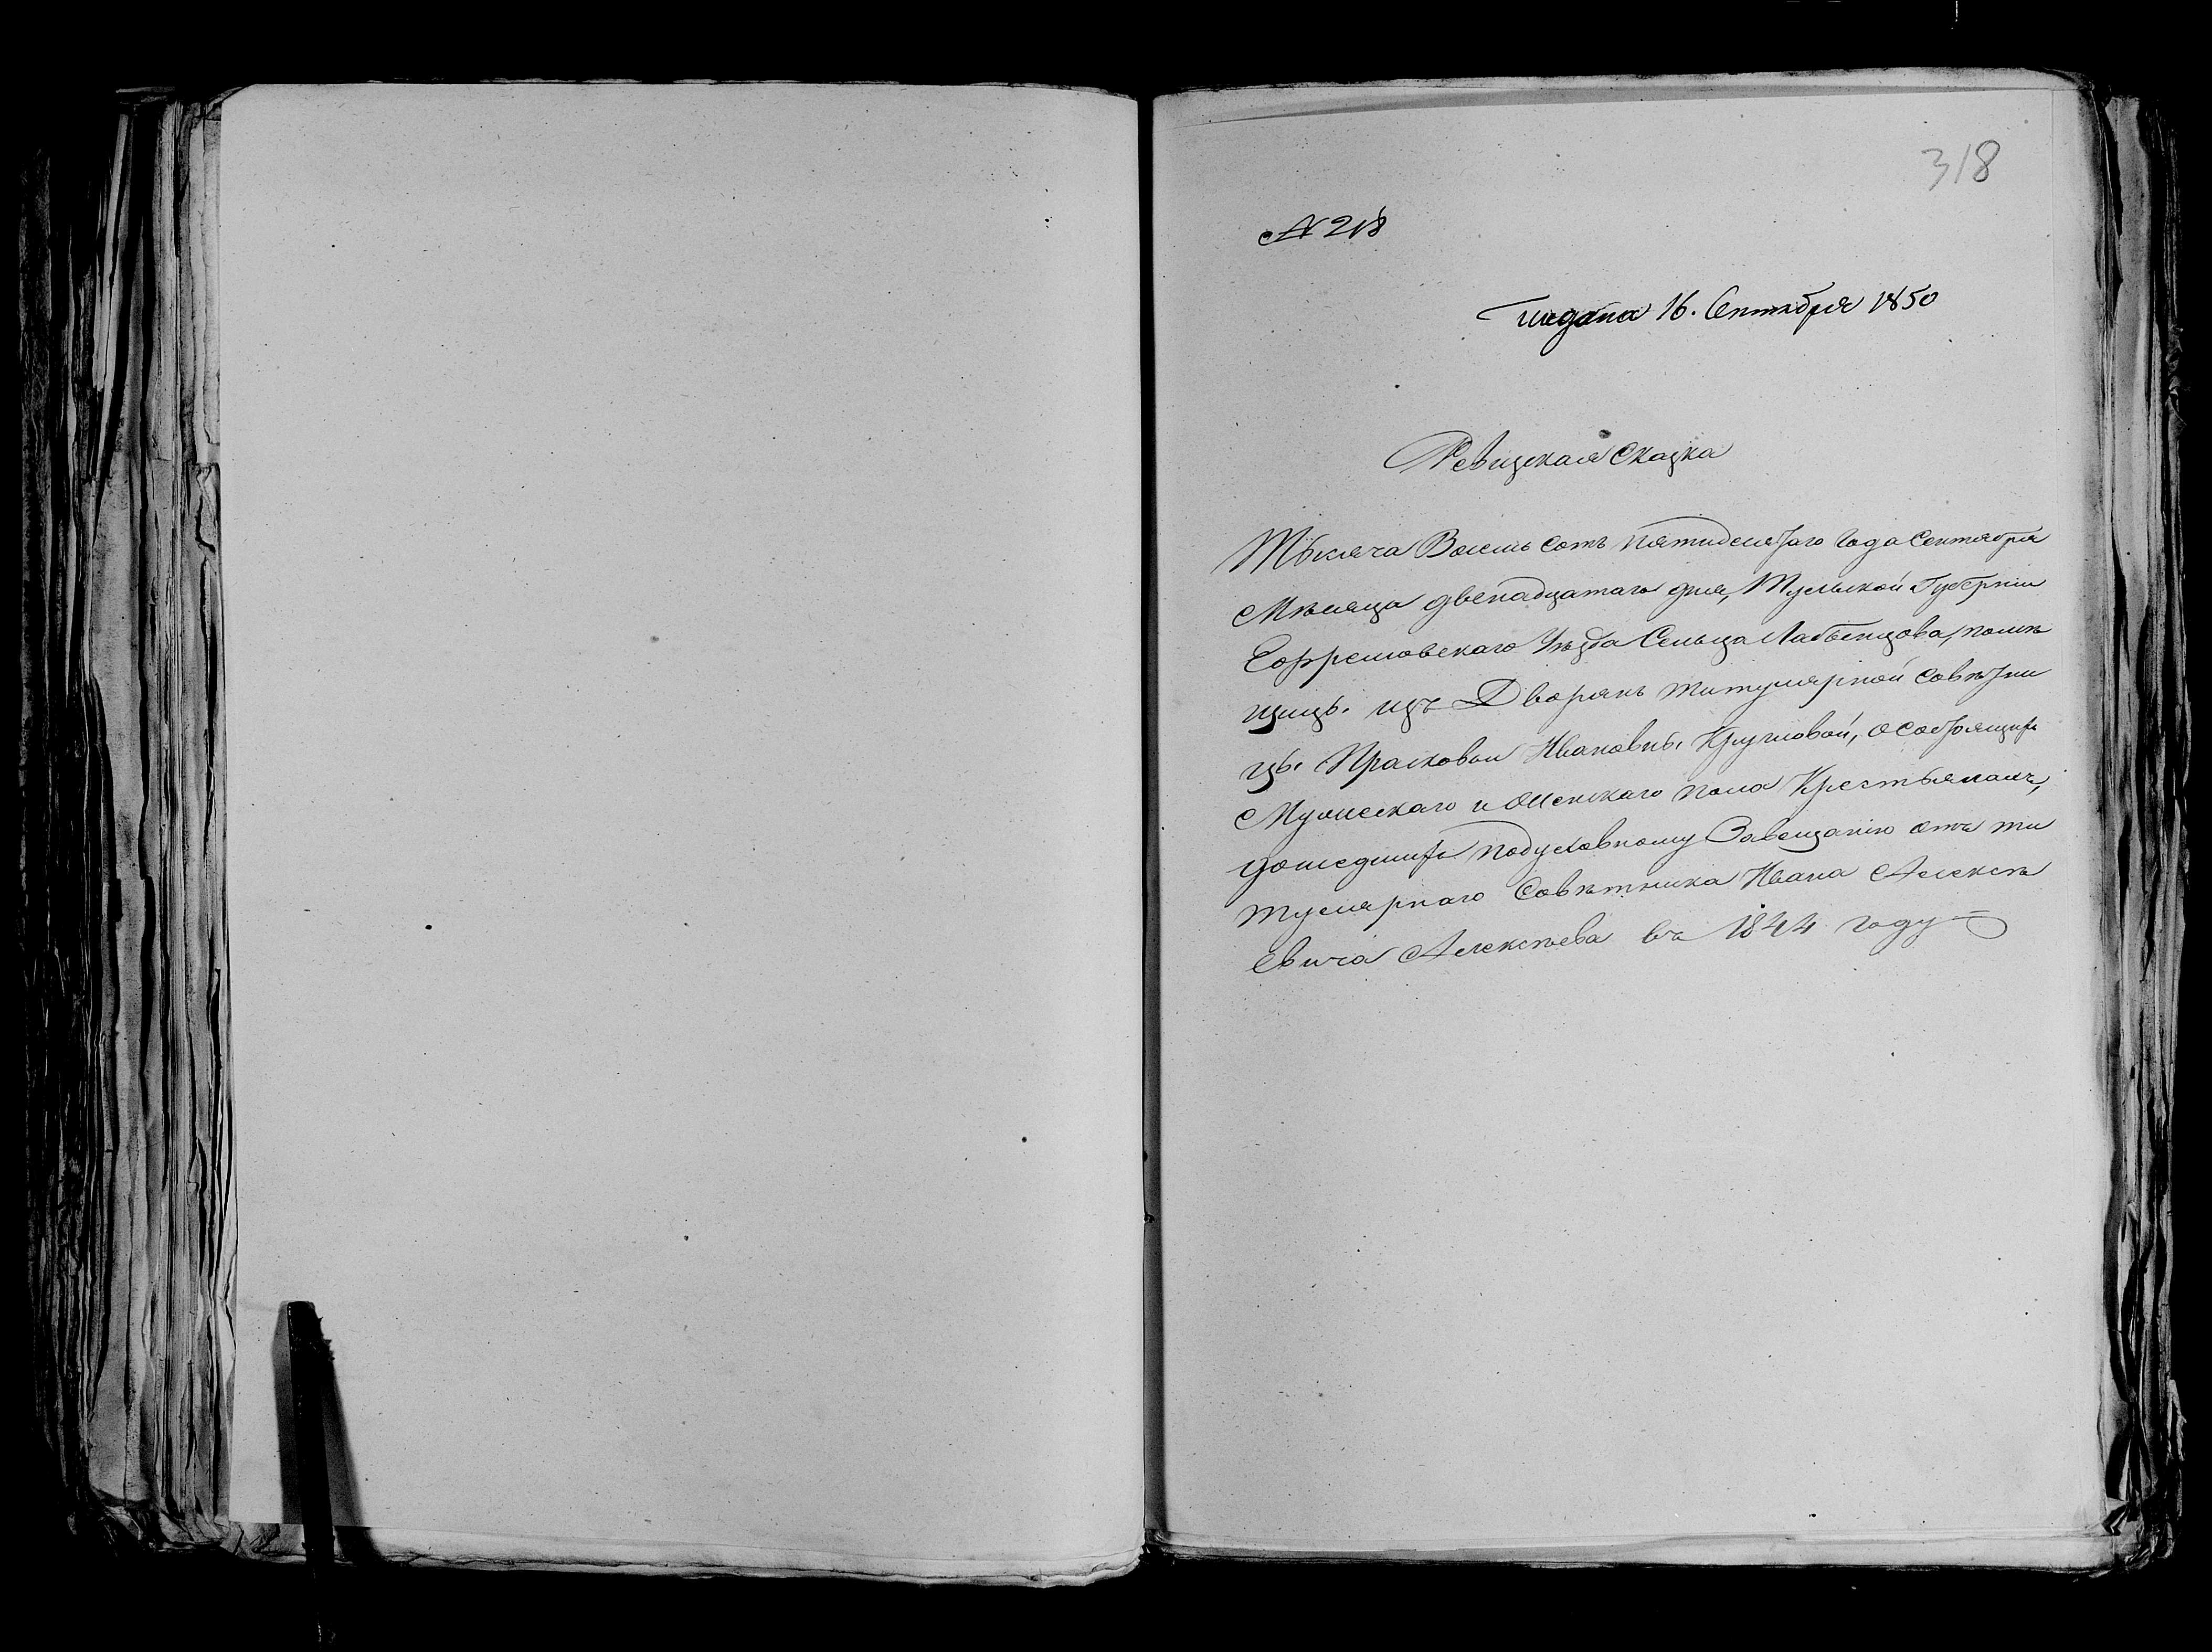 318
№ 218
подана 16. Сентября 1850
Ревизская Сказка
Тысяча Восемь сотъ пятидесятаго года Сентября
Мѣсяца двенадцатаго дня, Тульской Губерніи
Ефремовскаго Уѣзда Сельца помѣ
щицы изъ Дворянъ титулярной совѣтни
цы Прасковьи Ивановны о состоящихъ
Мужескаго и Женскаго пола Крестьянахъ,
дошедшихъ подуховному Завещанію отъ ти
тулярнаго Совѣтника Ивана Алексѣ
евича Алексѣева въ 1844 году